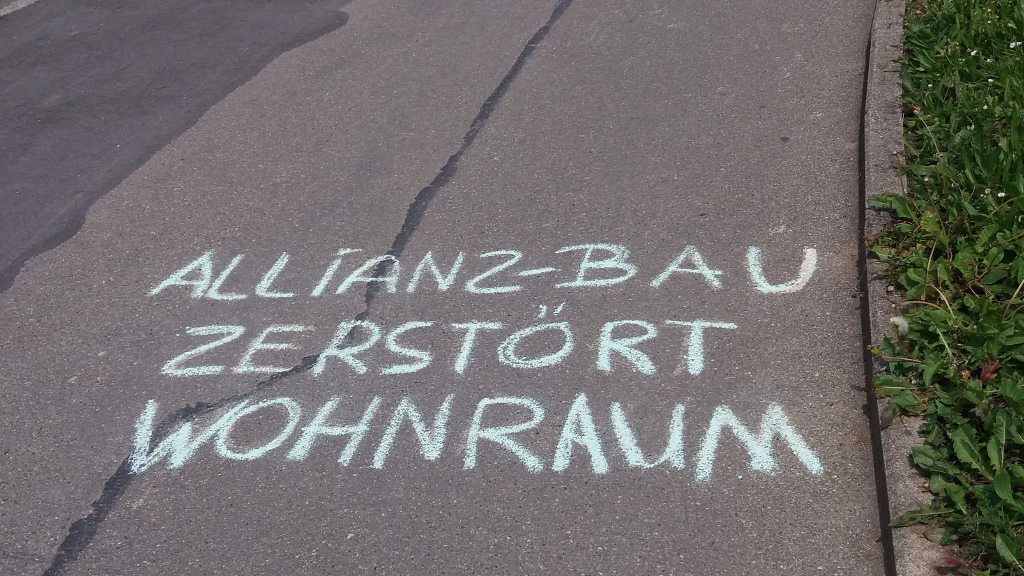 ALLIANZ-BAU
ZERSTÖRT
WOHNRAUM